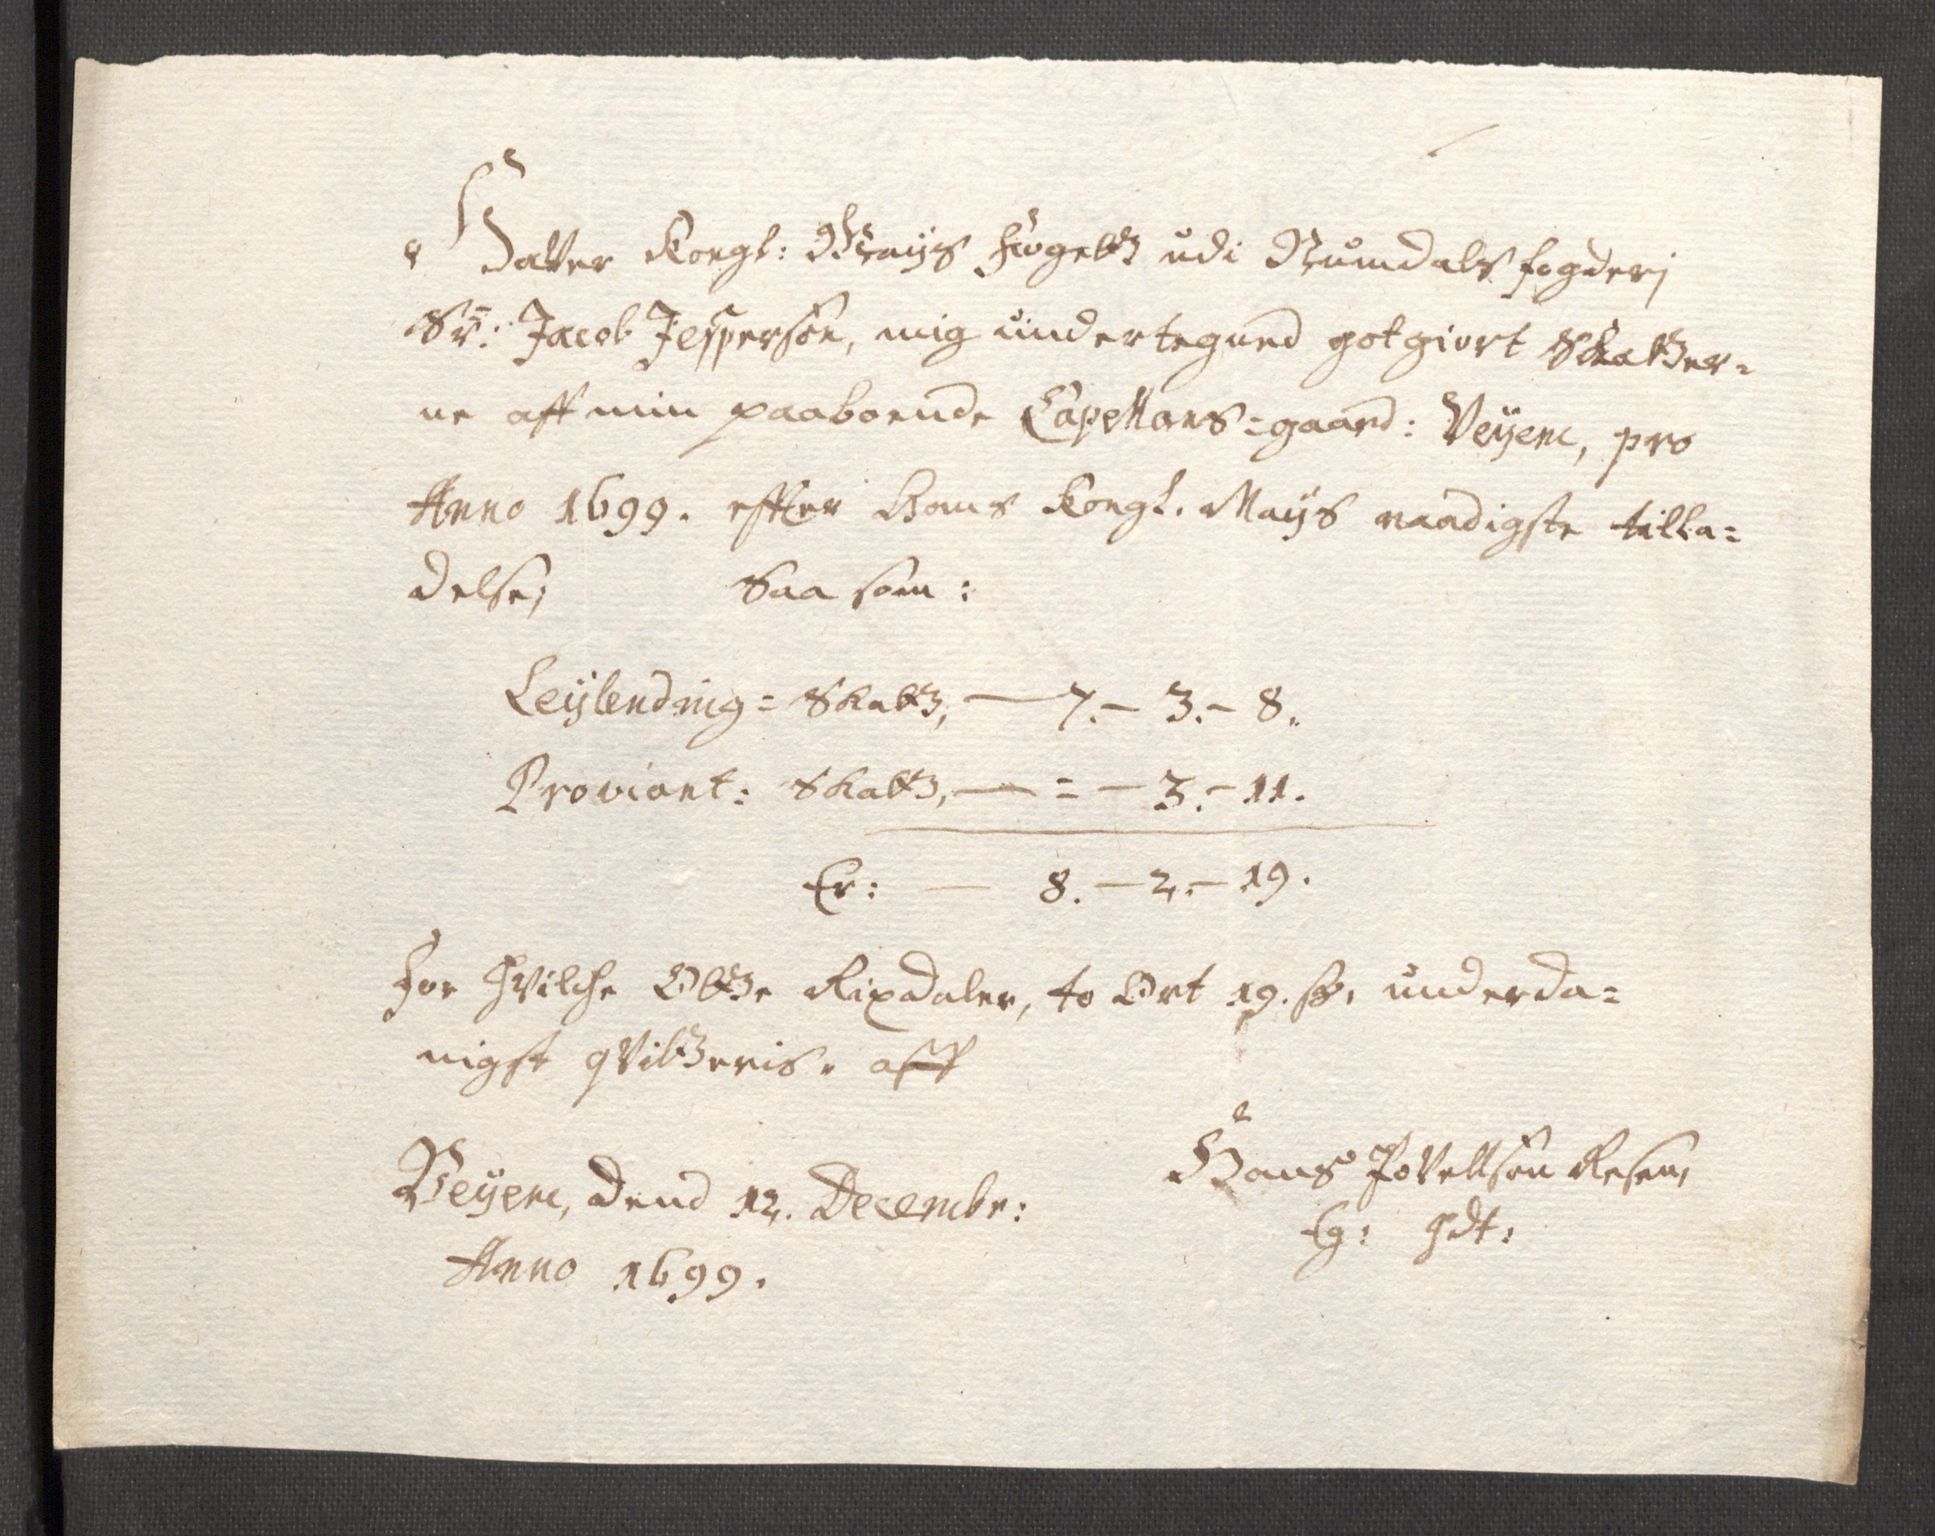 Hafver Kongl: Mayts fougett udi Numdals fogderj
Sr: Jacob Jespersøn, mig undertegned gotgiort Skatter-
ne aff min paaboende Capellans-gaard: Veyem, pro
Anno 1699. effter Hans Kongl. Mayts naadigste tilla-
delse, Saa som:
Leylending-Skatt, — 7.— 3.— 8.
Proviant: Skatt, — = — 3.— 11.
Er: — 8.— 2.— 19.
for hvilche Otte Rixdaler, to Ort 19. s. underda-
nigst qvitteris. aff
Veyem, dend 12. Decembr:
Anno 1699.
Hans Povelsøn Resen,
Eg: hdt: